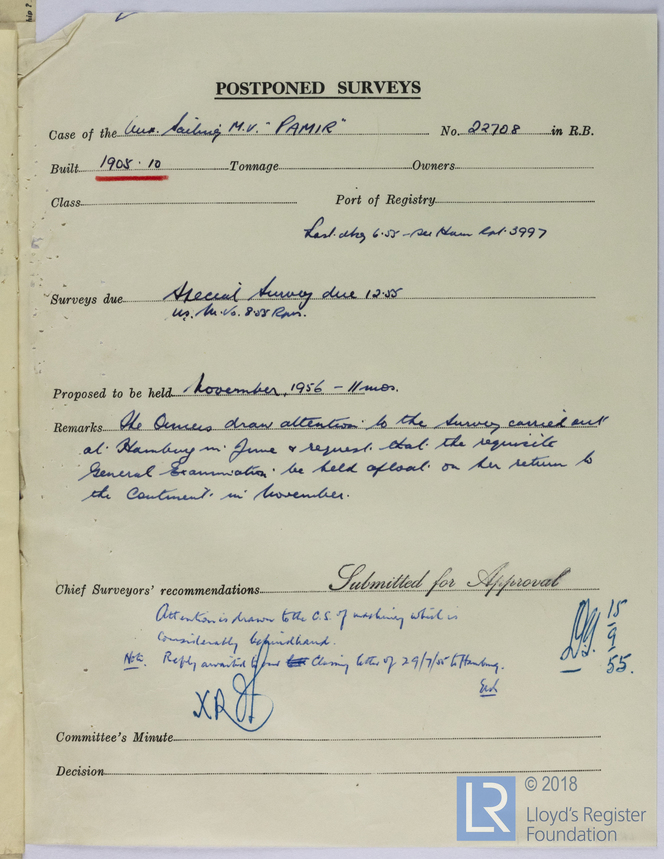 ship?
POSTPONED SURVEYS
Case of the Aux. Sailing M.V. "PAMIR" No. 22708 in R.B.
Built 1905.10 Tonnage Owners
Class Port of Registry
Last. dkg 6.55 - see Ham Rpt. 3997
Surveys due Special Survey due 12.55
8.55
Proposed to be held November, 1956 - 11 mos.
Remarks The Owners draw attention to the survey carried out
at Hamburg in June & request that the requisite
General Examination be held afloat on her return to
the Continent in November.
Chief Surveyors' recommendations Submitted for Approval
Attention is drawn to the C.S. of machinery which is
considerably behindhand.
Note. Reply awaited to our Classing letter of 29/7/55 to Hamburg.
15
9
55.
Committee's Minute
Decision
LR © 2018
Lloyd's Register
Foundation